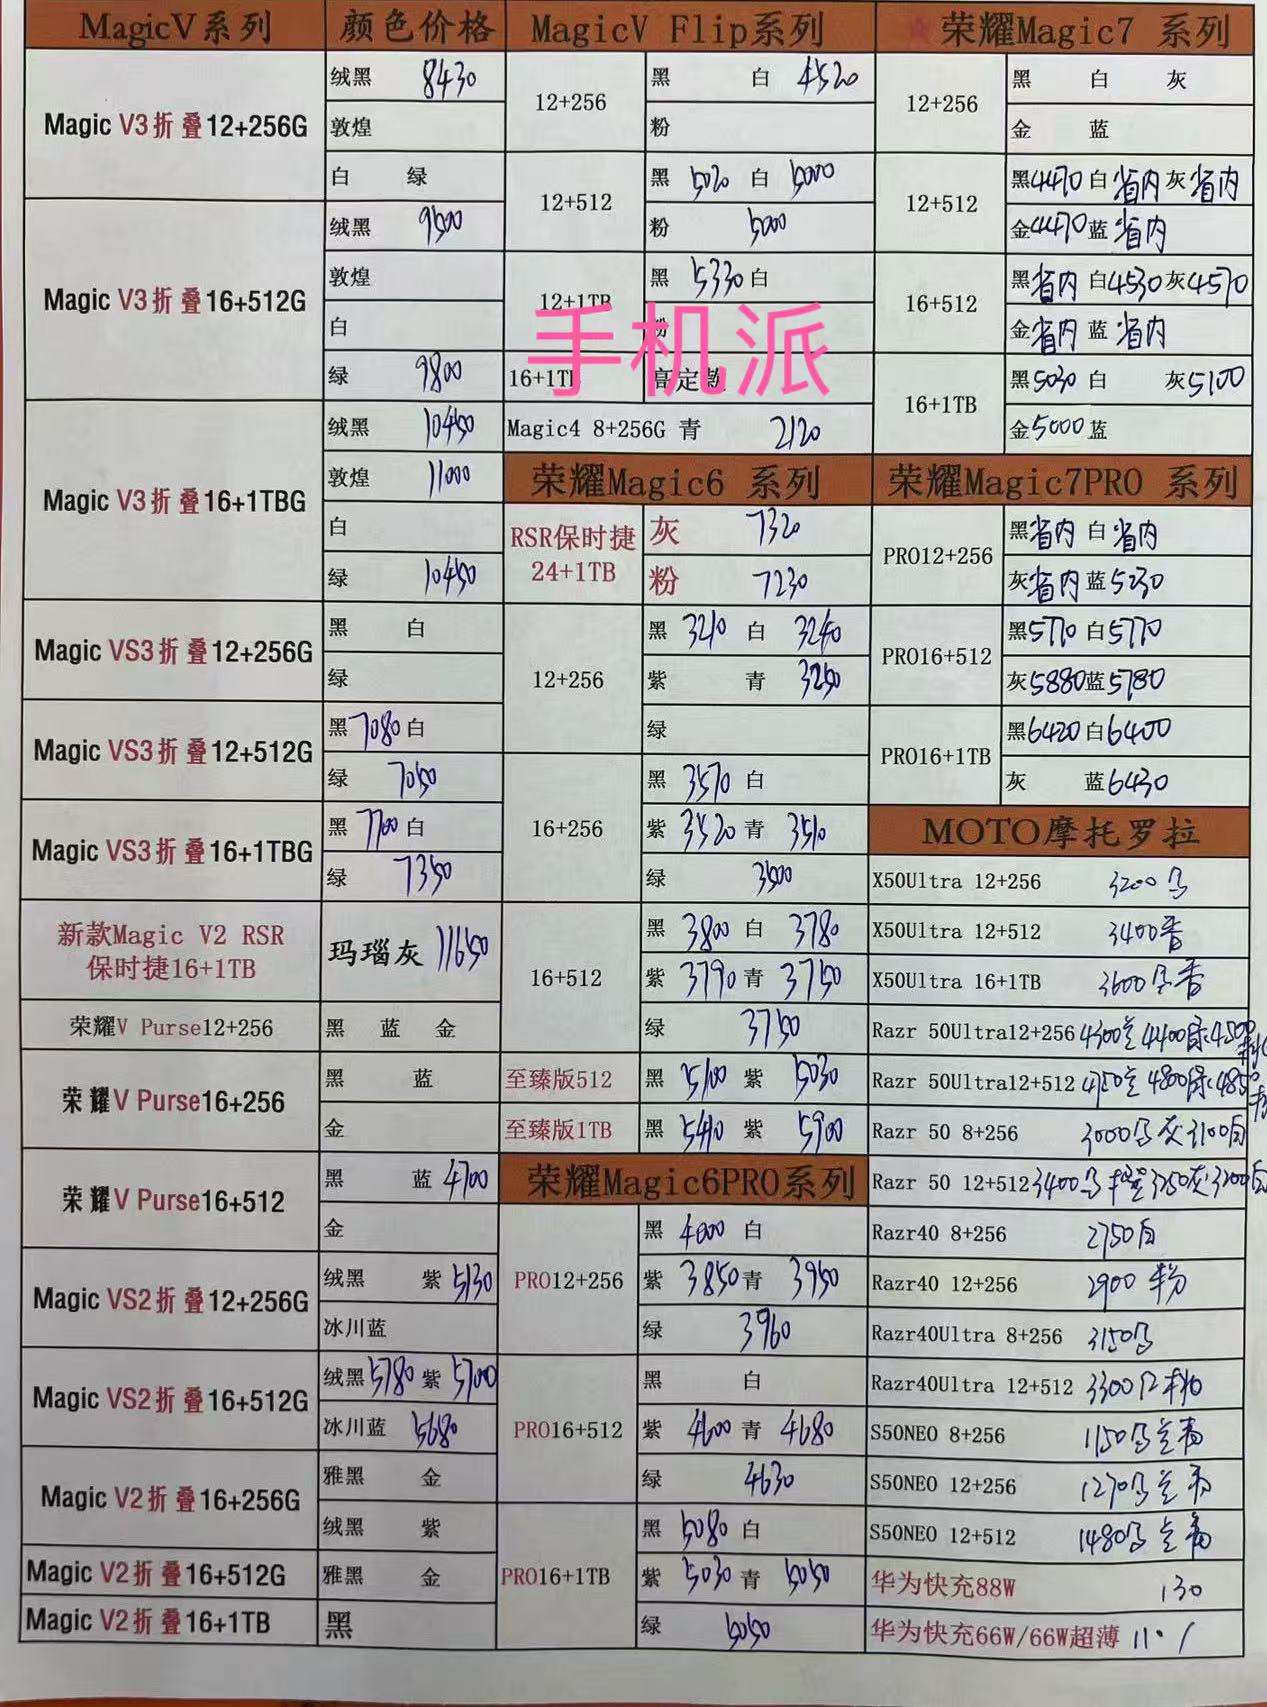 MagicV系列 颜色价格
Magic V3折叠12+256G
绒黑 8430
敦煌
白 绿
Magic V3折叠16+512G
绒黑 9500
敦煌
白
绿 9800
Magic V3折叠16+1TBG
绒黑 10450
敦煌 11000
白
绿 10450
Magic VS3折叠12+256G
黑 白
绿
Magic VS3折叠12+512G
黑7080白
绿 7050
Magic VS3折叠16+1TBG
黑7700白
绿 7350
新款Magic V2 RSR
保时捷16+1TB
玛瑙灰 11650
荣耀V Purse12+256
黑 蓝 金
荣耀V Purse16+256
黑 蓝
金
荣耀V Purse16+512
黑 蓝4700
金
Magic VS2折叠12+256G
绒黑 紫5130
冰川蓝
Magic VS2折叠16+512G
绒黑5780紫5700
冰川蓝 5680
Magic V2折叠16+256G
雅黑 金
绒黑 紫
Magic V2折叠16+512G
雅黑 金
Magic V2折叠16+1TB
黑
MagicV Flip系列
12+256
黑 白 4520
粉
12+512
黑 5020 白 5000
粉 5000
12+1TB
黑 5330白
粉
手机派
16+1TB 高定款
Magic4 8+256G 青 2120
荣耀Magic6 系列
RSR保时捷
24+1TB
灰 7320
粉 7230
12+256
黑 3210 白 3240
紫 青 3250
绿
16+256
黑 3570 白
紫 3520 青 3510
绿 3500
16+512
黑 3800 白 3780
紫 3790 青 3750
绿 3750
至臻版512 黑 5100 紫 5030
至臻版1TB 黑 5410 紫 5900
荣耀Magic6PRO系列
PRO12+256
黑 4000 白
紫 3850青 3950
绿 3960
PRO16+512
黑 白
紫 4600 青 4680
绿 4630
PRO16+1TB
黑 5080 白
紫 5030 青 5050
绿 5050
荣耀Magic7 系列
12+256
黑 白 灰
金 蓝
12+512
黑4470白省内灰省内
金4470蓝省内
16+512
黑省内白4530灰4570
金省内蓝省内
16+1TB
黑5030白 灰5100
金5000蓝
荣耀Magic7PRO 系列
PRO12+256
黑省内白省内
灰省内蓝5230
PRO16+512
黑5770白5770
灰5880蓝5780
PRO16+1TB
黑6420白6400
灰 蓝6430
MOTO摩托罗拉
X50Ultra 12+256 3200
X50Ultra 12+512 3400杏
X50Ultra 16+1TB 3600 杏
Razr 50Ultra12+256 4300 4400 450
Razr 50Ultra12+512 4750 4800 485
Razr 50 8+256 3000 灰3100白
Razr 50 12+512 3400 3250灰3200白
Razr40 8+256 2750白
Razr40 12+256 2900 粉
Razr40Ultra 8+256 3150
Razr40Ultra 12+512 3300 粉
S50NEO 8+256 1150
S50NEO 12+256 1270
S50NEO 12+512 1480
华为快充88W 130
华为快充66W/66W超薄